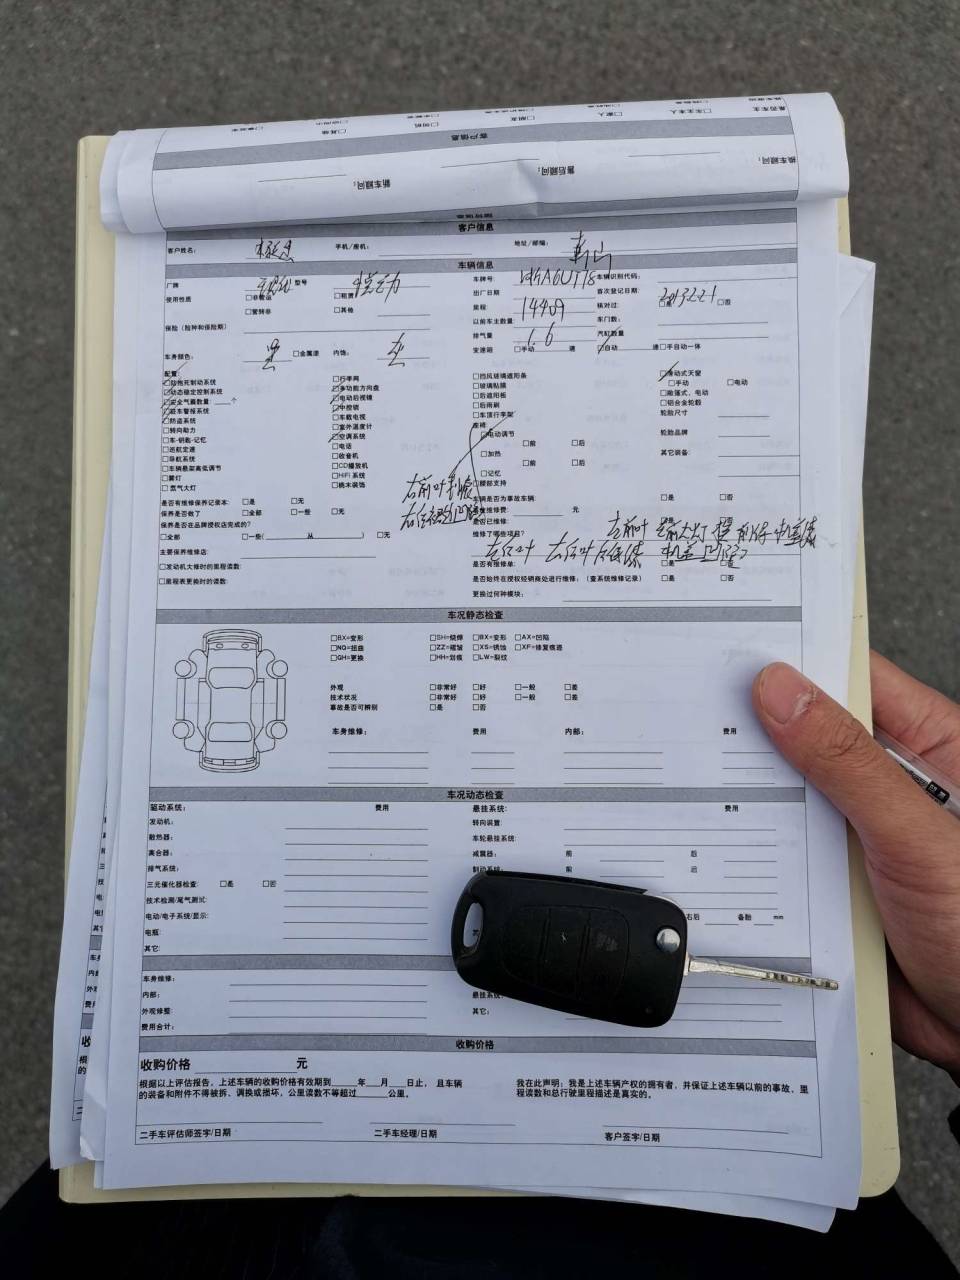 是否车主
□车主本人
□家人
□朋友
□司机
□其他
客户信息
换车顾问：
售后顾问：
新车顾问：
客户信息
客户姓名：
手机/座机：
地址/邮编：
车辆信息
厂牌
型号
车牌号：
车辆识别代码：
使用性质
□非营运
□租赁
出厂日期
首次登记日期：
2013.2.21
□营转非
□其他
里程：
14409
核对过：
□是
□否
保险（险种和保险期）
以前车主数量：
车门数：
排气量
1.6
汽缸数量
车身颜色：
□金属漆
内饰：
变速箱
□手动
速
□自动
速□手自动一体
配置：
□防抱死制动系统
□动态稳定控制系统
□安全气囊数量：____个
□驻车警报系统
□防盗系统
□转向助力
□车-钥匙-记忆
□巡航定速
□导航系统
□车辆悬架高低调节
□雾灯
□氙气大灯
□行李网
□多功能方向盘
□电动后视镜
□中控锁
□车载电视
□室外温度计
□空调系统
□电话
□收音机
□CD播放机
□HiFi系统
□桃木装饰
□挡风玻璃遮阳条
□玻璃贴膜
□后遮阳板
□后雨刷
□车顶行李架
座椅：
□电动调节
□前
□后
□加热
□前
□后
□记忆
□腰部支持
□滑动式天窗
□手动
□电动
□敞篷式，电动
□铝合金轮毂
轮胎尺寸
轮胎品牌
其它装备：
是否有维修保养记录本：
□是
□无
保养是否做了
□全部
□一些
□无
保养是否在品牌授权店完成的？
□全部
□一些(
从
)
□无
主要保养维修店：
□发动机大修时的里程读数：
□里程表更换时的读数：
车辆是否为事故车辆：
□是
□否
元
是否已维修：
□是
□否
维修了哪些项目？
是否有维修单：
□是
□否
是否始终在授权经销商处进行维修：（查系统维修记录）
□是
□否
更换过何种模块：
车况静态检查
□BX=变形
□SH=烧焊
□BX=变形
□AX=凹陷
□NQ=扭曲
□ZZ=褶皱
□XS=锈蚀
□XF=修复痕迹
□GH=更换
□HH=划痕
□LW=裂纹
外观
□非常好
□好
□一般
□差
技术状况
□非常好
□好
□一般
□差
事故是否可辨别
□是
□否
车身维修：
费用
内部：
费用
车况动态检查
驱动系统：
费用
悬挂系统：
费用
发动机：
转向装置：
散热器：
车轮悬挂系统：
离合器：
减震器：
前
后
排气系统：
制动系统：
前
后
三元催化器检查：
□是
□否
技术检测/尾气测试：
电动/电子系统/显示：
右后
备胎
mm
电瓶：
其它：
车身维修：
内部：
悬挂系统：
外观修整：
其它：
费用合计：
收购价格
收购价格
元
根据以上评估报告，上述车辆的收购价格有效期到____年___月___日止，且车辆
的装备和附件不得被拆、调换或损坏，公里读数不等超过______公里。
我在此声明：我是上述车辆产权的拥有者，并保证上述车辆以前的事故、里
程读数和总行驶里程描述是真实的。
二手车评估师签字/日期
二手车经理/日期
客户签字/日期